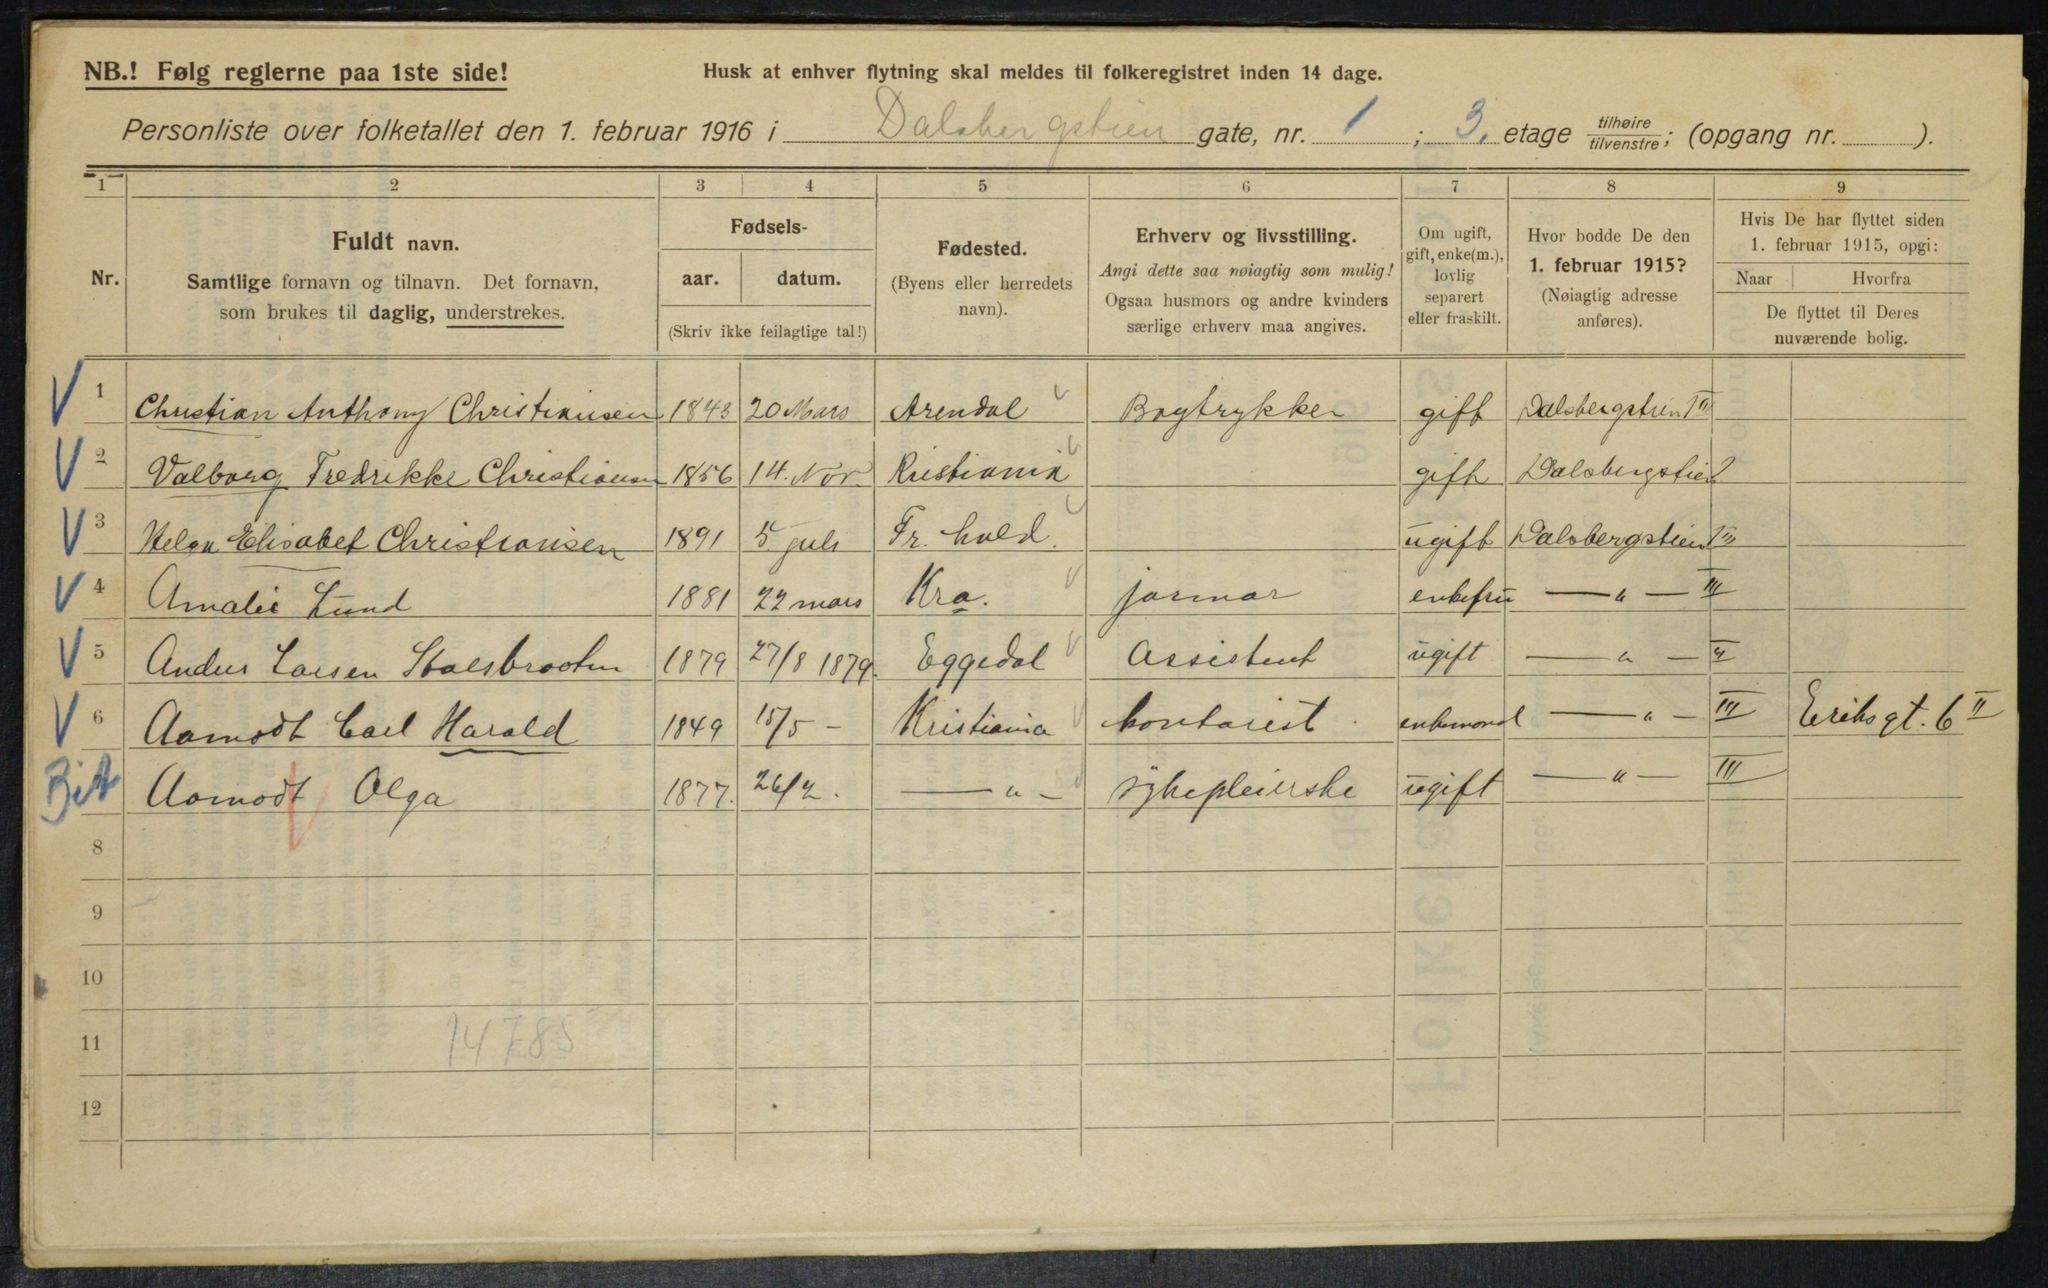 NB.! Følg reglerne paa 1ste side!
Husk at enhver flytning skal meldes til folkeregistret inden 14 dage.
Personliste over folketallet den 1. februar 1916 i Dalsbergstien gate, nr. 1 ; 3. etage tilhøire/tilvenstre; (opgang nr. ).
1 2 3 4 5 6 7 8 9
Nr.
Fuldt navn.
Samtlige fornavn og tilnavn. Det fornavn,
som brukes til daglig, understrekes.
Fødsels-
aar. datum.
(Skriv ikke feilagtige tal!)
Fødested.
(Byens eller herredets
navn).
Erhverv og livsstilling.
Angi dette saa nøiagtig som mulig!
Ogsaa husmors og andre kvinders
særlige erhverv maa angives.
Om ugift,
gift, enke(m.),
lovlig
separert
eller fraskilt.
Hvor bodde De den
1. februar 1915?
(Nøiagtig adresse
anføres).
Hvis De har flyttet siden
1. februar 1915, opgi:
Naar Hvorfra
De flyttet til Deres
nuværende bolig.
V 1 Christian Anthony Christiansen 1843 20 Mars Arendal Bogtrykker gift Dalsbergstien 1 III
V 2 Valborg Fredrikke Christiansen 1856 14. Nov. Kristiania gift Dalsbergstien
V 3 Helga Elisabet Christiansen 1891 5 juli Fr. hald. ugift Dalsbergstien 1 III
V 4 Amalie Lund 1881 22 mars Kra. enkefru — " — III
V 5 Larsen 1879 27/8 1879. Eggedal Assistent ugift — " —
V 6 Aamodt Carl Harald 1849 15/5 — Kristiania kontorist enkemand — " — III Eriksgt. 6 II
Aamodt Olga 1877. 26/2. — " — sykepleierske ugift — " — III
8
9
10
11
12
14785